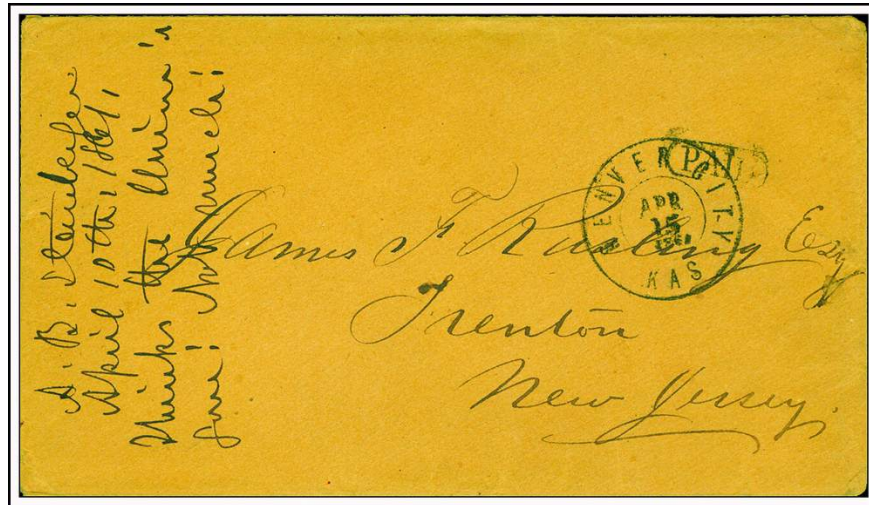 A. B. Steinberger
April 10th, 1861,
Thinks the Union's
gone! Not much!
DENVER CITY
KAS
APR
15
1861
PAID
James F Rusling Esq
Trenton
New Jersey.